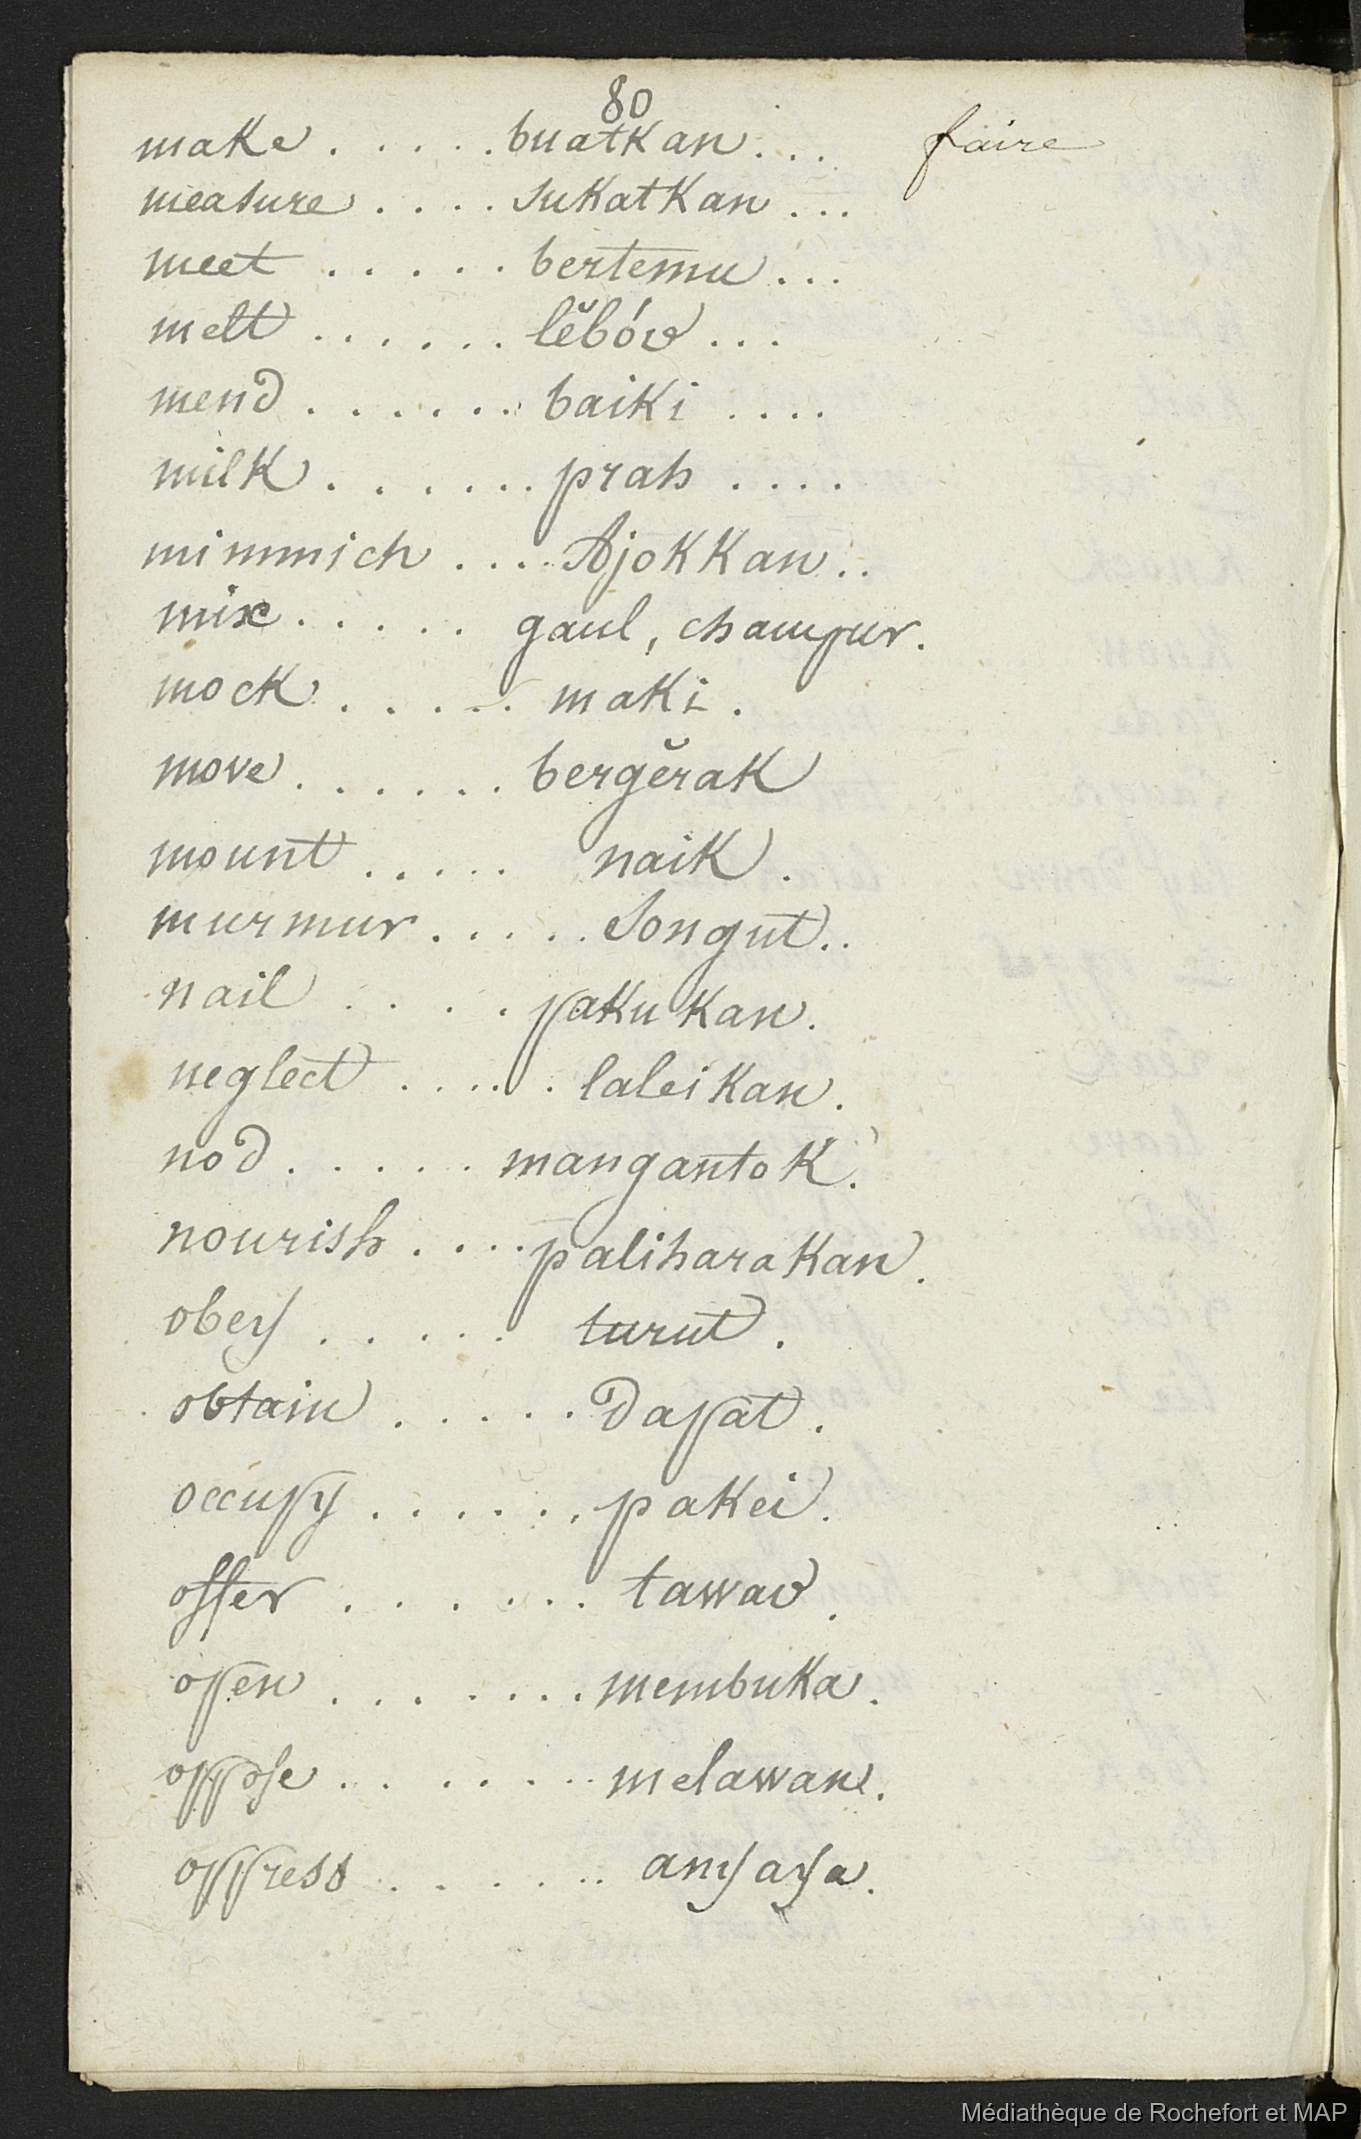 80
make . . . . . buatkan . . . faire
measure . . . . sukatkan . . .
meet . . . . . bertemu . . .
melt . . . . . . lĕbóv . . .
mend . . . . . . baiki . . . .
milk . . . . . . prah . . . .
mimmich . . . . Ajokkan . .
mix . . . . . gaul, champur.
mock . . . . . maki .
move . . . . . . bergĕrak
mount . . . . . naik .
murmur . . . . . songut . .
nail . . . . pakukan .
neglect . . . . . laleikan .
nod . . . . . mangantok .
nourish . . . . paliharakan .
obey . . . . . turut .
obtain . . . . . dapat .
occupy . . . . . . pakei .
offer . . . . . . tawav .
open . . . . . . . membuka .
oppose . . . . . . . melawan .
oppress . . . . . . anyaya .
Médiathèque de Rochefort et MAP